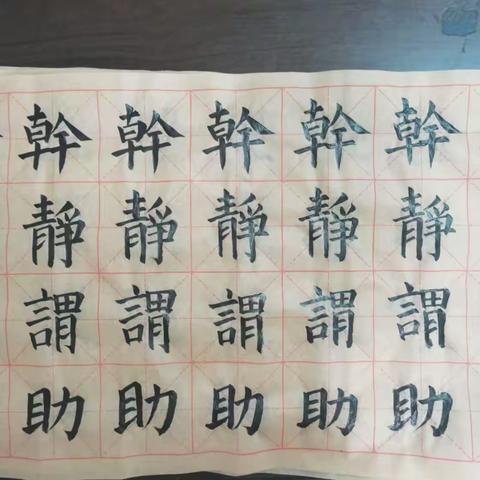 幹幹幹幹幹
靜靜靜靜靜
謂謂謂謂謂
助助助助助